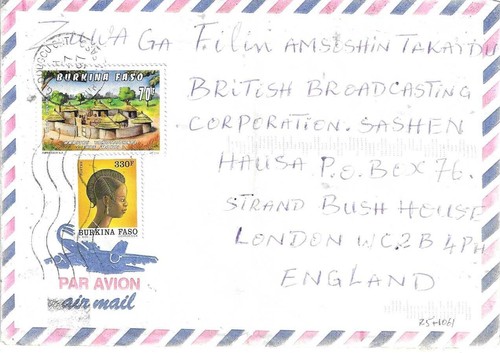 ZUWA GA Filin AMSISHIN TAKARDU
BRITISH BROADCASTING
CORPORATION. SASHEN
HAUSA P.O. BOX 76.
STRAND BUSH HOUSE
LONDON WC2B 4PH
ENGLAND
BURKINA FASO
70F
330F
BURKINA FASO
PAR AVION
air mail